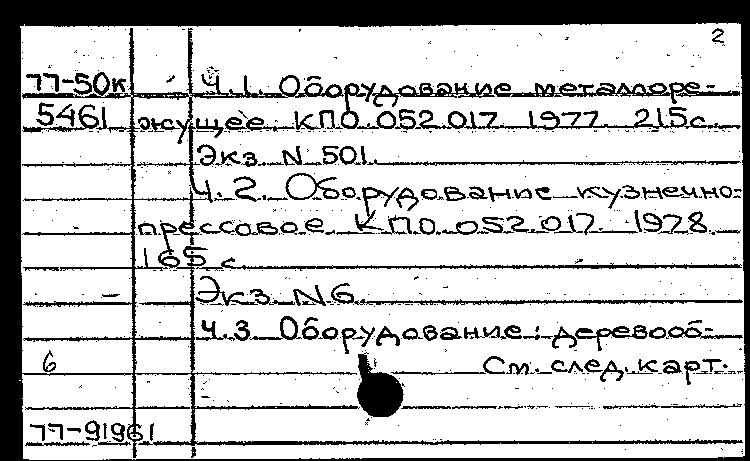 2
77-50к Ч.1. Оборудование металлоре-
5461 жущее. КПО.052.017. 1977. 215с.
Экз. N 501.
Ч.2. Оборудование кузнечно-
прессовое. КПО.052.017. 1978.
165 с.
Экз. N6.
Ч.3. Оборудование: деревооб-
6 См. след. карт.
77-91961